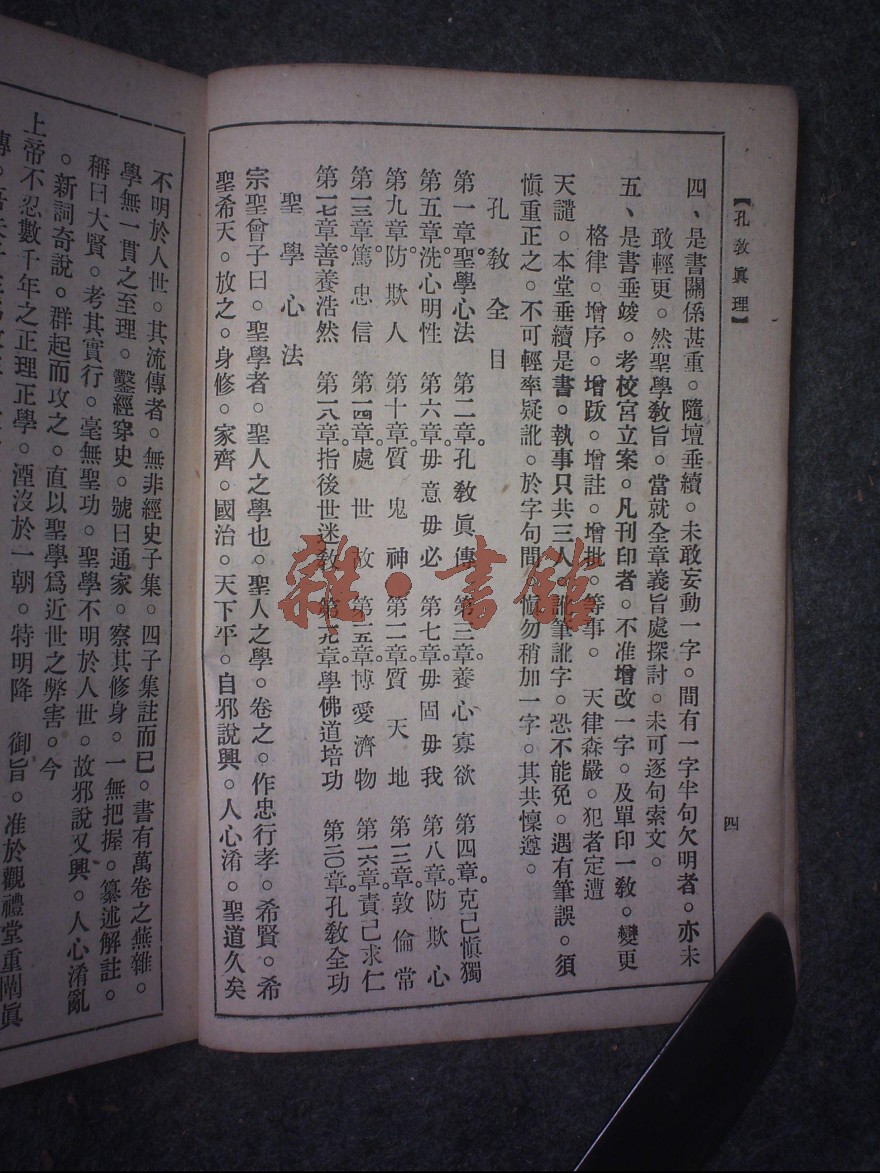 【孔教眞理】
四
四、是書關係甚重。隨壇垂續。未敢妄動一字。間有一字半句欠明者。亦未
敢輕更。然聖學教旨。當就全章義旨處探討。未可逐句索文。
五、是書垂竣。考校宮立案。凡刊印者。不准增改一字。及單印一教。變更
格律。增序。增跋。增註。增批。等事。 天律森嚴。犯者定遭
天譴。本堂垂續是書。執事只共三人。訛筆訛字。恐不能免。遇有筆誤。須
愼重正之。不可輕率疑訛。於字句間。愼勿稍加一字。其共懍遵。
孔教全目
第一章。聖學心法 第二章。孔教眞傳 第三章。養心寡欲 第四章。克己愼獨
第五章。洗心明性 第六章。毋意毋必 第七章。毋固毋我 第八章。防欺心
第九章。防欺人 第十章。質鬼神 第十一章。質天地 第十二章。敦倫常
第十三章。篤忠信 第十四章。處世故 第十五章。博愛濟物 第十六章。責己求仁
第十七章。善養浩然 第十八章。指後世迷教 第十九章。學佛道培功 第二〇章。孔教全功
聖學心法
宗聖曾子曰。聖學者。聖人之學也。聖人之學。卷之。作忠行孝。希賢。希
聖希天。放之。身修。家齊。國治。天下平。自邪說興。人心淆。聖道久矣
不明於人世。其流傳者。無非經史子集。四子集註而已。書有萬卷之蕪雜。
學無一貫之至理。鑿經穿史。號曰通家。察其修身。一無把握。纂述解註。
稱曰大賢。考其實行。毫無聖功。聖學不明於人世。故邪說又興。人心淆亂
。新詞奇說。群起而攻之。直以聖學爲近世之弊害。今
上帝不忍數千年之正理正學。湮沒於一朝。特明降 御旨。准於觀禮堂重闡眞
雜·書館